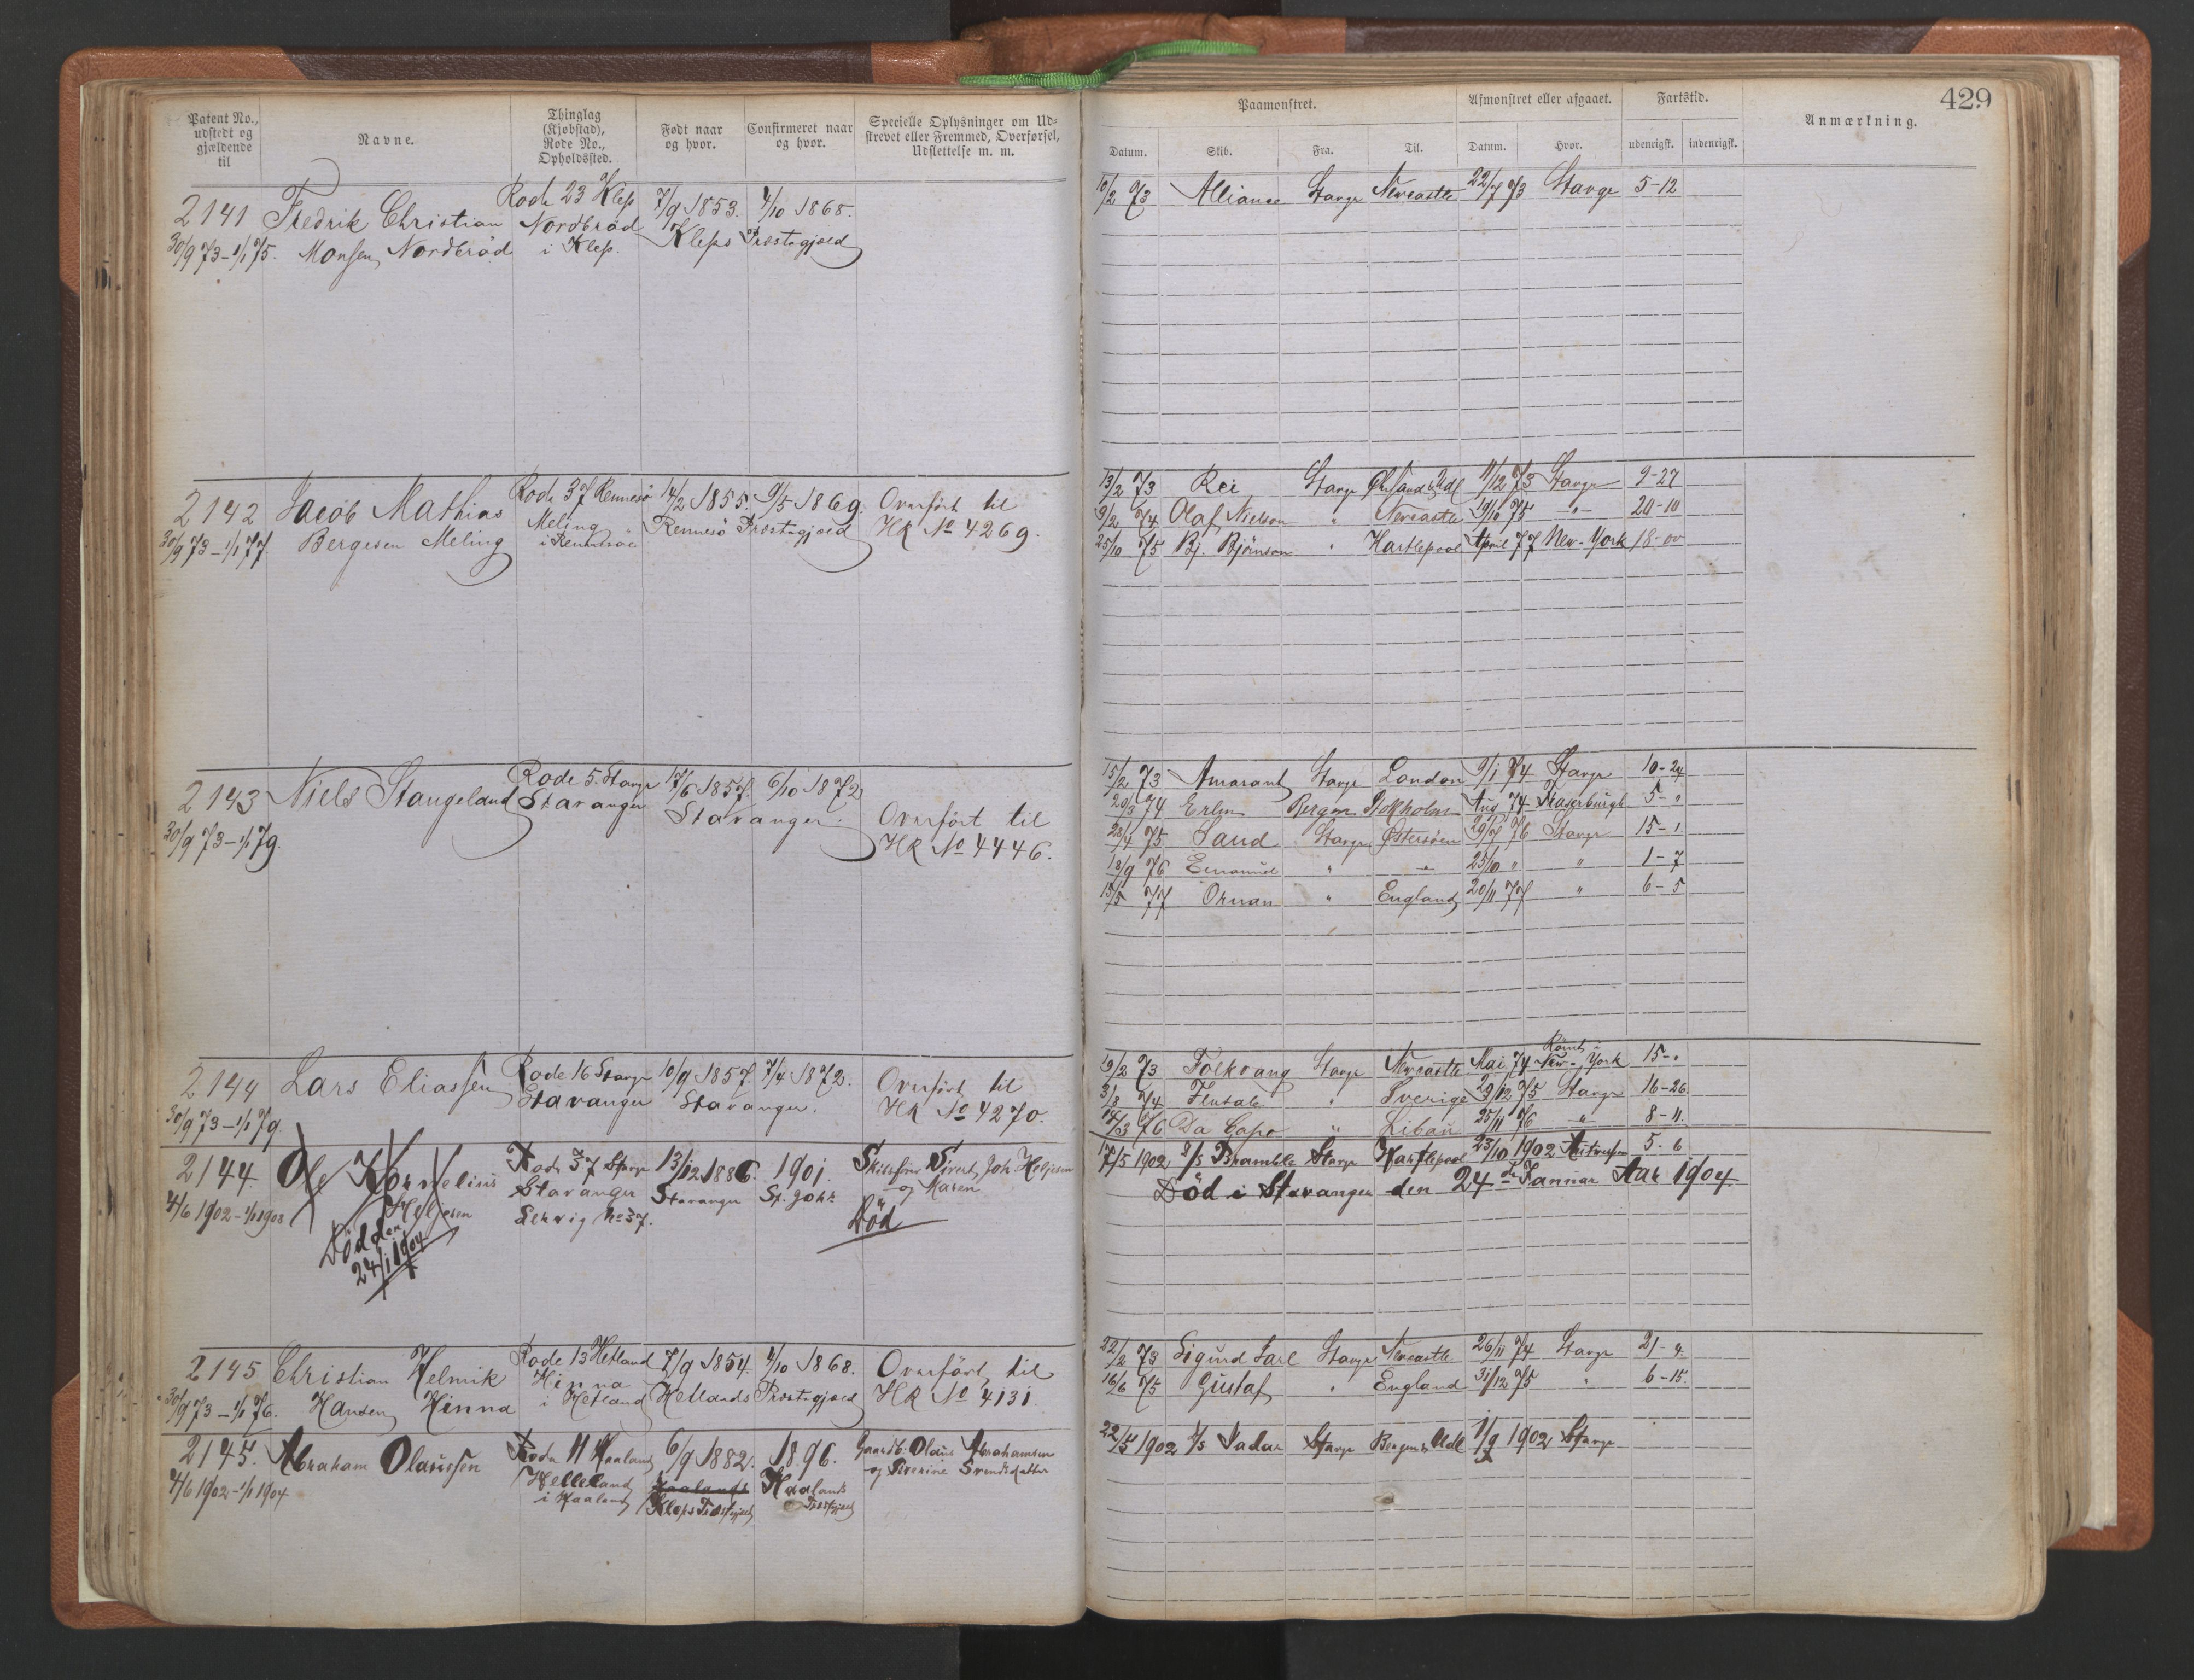 429
Patent No., udstedt og gjældende til
Navne.
Thinglag (Kjøbstad), Rode No., Opholdssted.
Født naar og hvor.
Confirmeret naar og hvor.
Specielle Oplysninger om Udskrevet eller Fremmed, Overførsel, Udslettelse m. m.
Paamonstret.
Afmonstret eller afgaaet.
Fartstid.
Anmærkning.
Datum. Skib. Fra. Til. Datum. Hvor. udenrigsk. indenrigsk.
2141 Fredrik Christian Rode 23 Klep 7/9 1853. 4/10 1868.
30/9 73 - 1/1 75. Monsen Nordbrød Nordbrød i Klep. Kleps Præstegjæld
10/2 73 Alliance Stavgr Newcastle 22/7 73 Stavgr 5-12
2142 Jacob Mathias Rode 37 Rennesø 14/2 1855. 9/5 1869. Overført til
30/9 73 - 1/1 77. Bergesen Meling Meling i Rennesøe Rennesø Præstegjæld HR No 4269.
13/2 73 Rei Stavgr 11/12 73 Stavgr 9-27
9/2 74 Olaf Nielson " Newcastle 19/10 75 " 20-10
25/10 75 Bj. Bjørnson " Hartlepool April 77 New-York 18-00
2143 Niels Stangeland Rode 5. Stavgr 17/6 1857. 6/10 1872
30/9 73 - 1/1 79. Stavanger Stavanger. Overført til
HR No 4446.
15/2 73 Amarant Stavgr London 9/1 74 Stavgr 10-24
20/3 74 Erlin Bergen Stokholm Aug 74 Fraserburgh 5-"
23/4 75 Sand Stavgr Østersøen 29/7 76 Stavgr 15-1.
18/9 76 Emanuel " " 25/10 " " 1-7
15/5 77 Ornan " England 20/11 77 " 6-5
2144 Lars Eliassen Rode 16 Stavgr 10/9 1857. 7/4 1872. Overført til
30/9 73 - 1/1 79. Stavanger Stavanger. HR No 4270.
19/2 73 Folkvang Stavgr Newcastle Mai 74 Rømt i New-York 15-"
3/8 74 " Sverige 29/12 75 Stavgr 16-26.
14/3 76 Da Capo " Libau 25/11 76 " 8-11.
2144. Ole Kornelius Rode 37 Stavgr 13/12 1886. 1901. Sivert Joh Heljesen
4/6 1902 - 1/1 1908 Heljesen Stavanger Stavanger St. Joh. og Maren
Lervig No 37. Død
Død den
24/1 1904
17/5 1902 S/S Bramble Stavgr Hartlepool 23/10 1902 Antwerpen 5. 6
Død i Stavanger den 24de Januar Aar 1904.
2145 Christian Helmik Rode 13 Hetland 7/9 1854. 4/10 1868. Overført til
30/9 73 - 1/1 76. Hansen Hinna Hinna i Hetland Hetlands Præstegjæld HR No 4131.
22/2 73 Sigurd Jarl Stavgr Newcastle 26/11 74 Stavgr 21-4.
16/6 75 Gustaf " England 31/12 75 " 6-15.
2145. Abraham Olaussen Rode 11 Haaland 6/9 1882. 1896. Gaardb. Olaus Abrahamsen
4/6 1902 - 1/1 1904 Helleland i Haaland Haalands Kleps Præstegjæld Haalands Præstegjæld og Severine Svendsdatter
22/5 1902 S/S Jadar Stavgr Bergen & Udl 1/9 1902 Stavgr